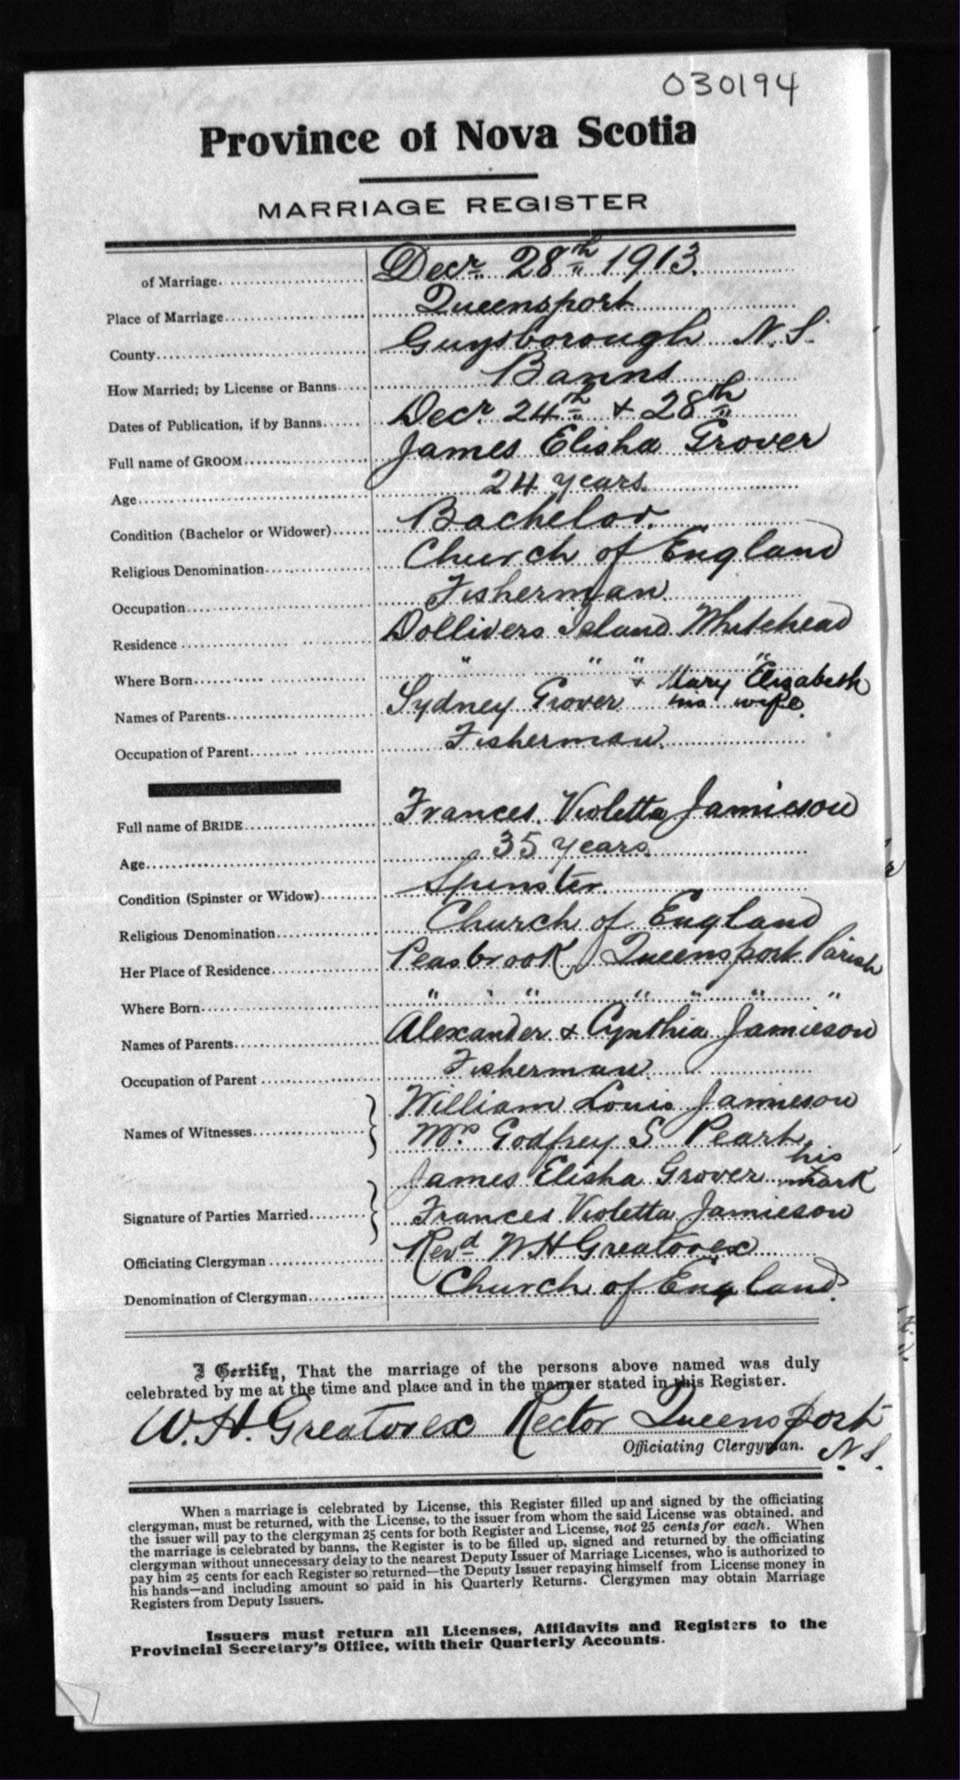 030194
Province of Nova Scotia
MARRIAGE REGISTER
of Marriage Decr 28th 1913.
Place of Marriage Queensport
County Guysborough N.S.
How Married; by License or Banns Banns
Dates of Publication, if by Banns Decr 24th & 28th
Full name of GROOM James Elisha Grover
Age 24 years
Condition (Bachelor or Widower) Bachelor.
Religious Denomination Church of England
Occupation Fisherman
Residence Dollivers Island Whitehead
Where Born " " " "
Names of Parents Sydney Grover & Mary Elizabeth his wife.
Occupation of Parent Fisherman.
Full name of BRIDE Frances Violetta Jamieson
Age 35 years
Condition (Spinster or Widow) Spinster
Religious Denomination Church of England
Her Place of Residence Peasbrook Queensport Parish
Where Born " " " " " " "
Names of Parents Alexander & Cynthia Jamieson
Occupation of Parent Fisherman
Names of Witnesses William Louis Jamieson
Mrs Godfrey S Peart
James Elisha Grover his x mark
Signature of Parties Married Frances Violetta Jamieson
Officiating Clergyman Revd W H Greatorex
Denomination of Clergyman Church of England.
I Certify, That the marriage of the persons above named was duly
celebrated by me at the time and place and in the manner stated in this Register.
W. H. Greatorex Rector Queensport
Officiating Clergyman. N.S.
When a marriage is celebrated by License, this Register filled up and signed by the officiating
clergyman, must be returned, with the License, to the issuer from whom the said License was obtained, and
the issuer will pay to the clergyman 25 cents for both Register and License, not 25 cents for each. When
the marriage is celebrated by banns, the Register is to be filled up, signed and returned by the officiating
clergyman without unnecessary delay to the nearest Deputy Issuer of Marriage Licenses, who is authorized to
pay him 25 cents for each Register so returned—the Deputy Issuer repaying himself from License money in
his hands—and including amount so paid in his Quarterly Returns. Clergymen may obtain Marriage
Registers from Deputy Issuers.
Issuers must return all Licenses, Affidavits and Registers to the
Provincial Secretary's Office, with their Quarterly Accounts.